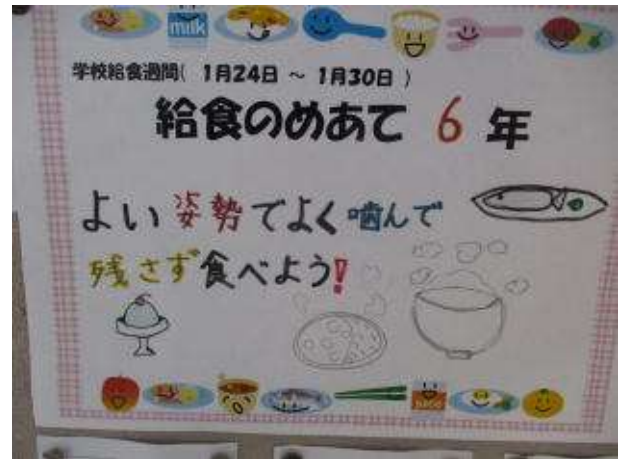 milk
学校給食週間( 1月24日 ～ 1月30日 )
給食のめあて 6 年
よい姿勢でよく噛んで
残さず食べよう!